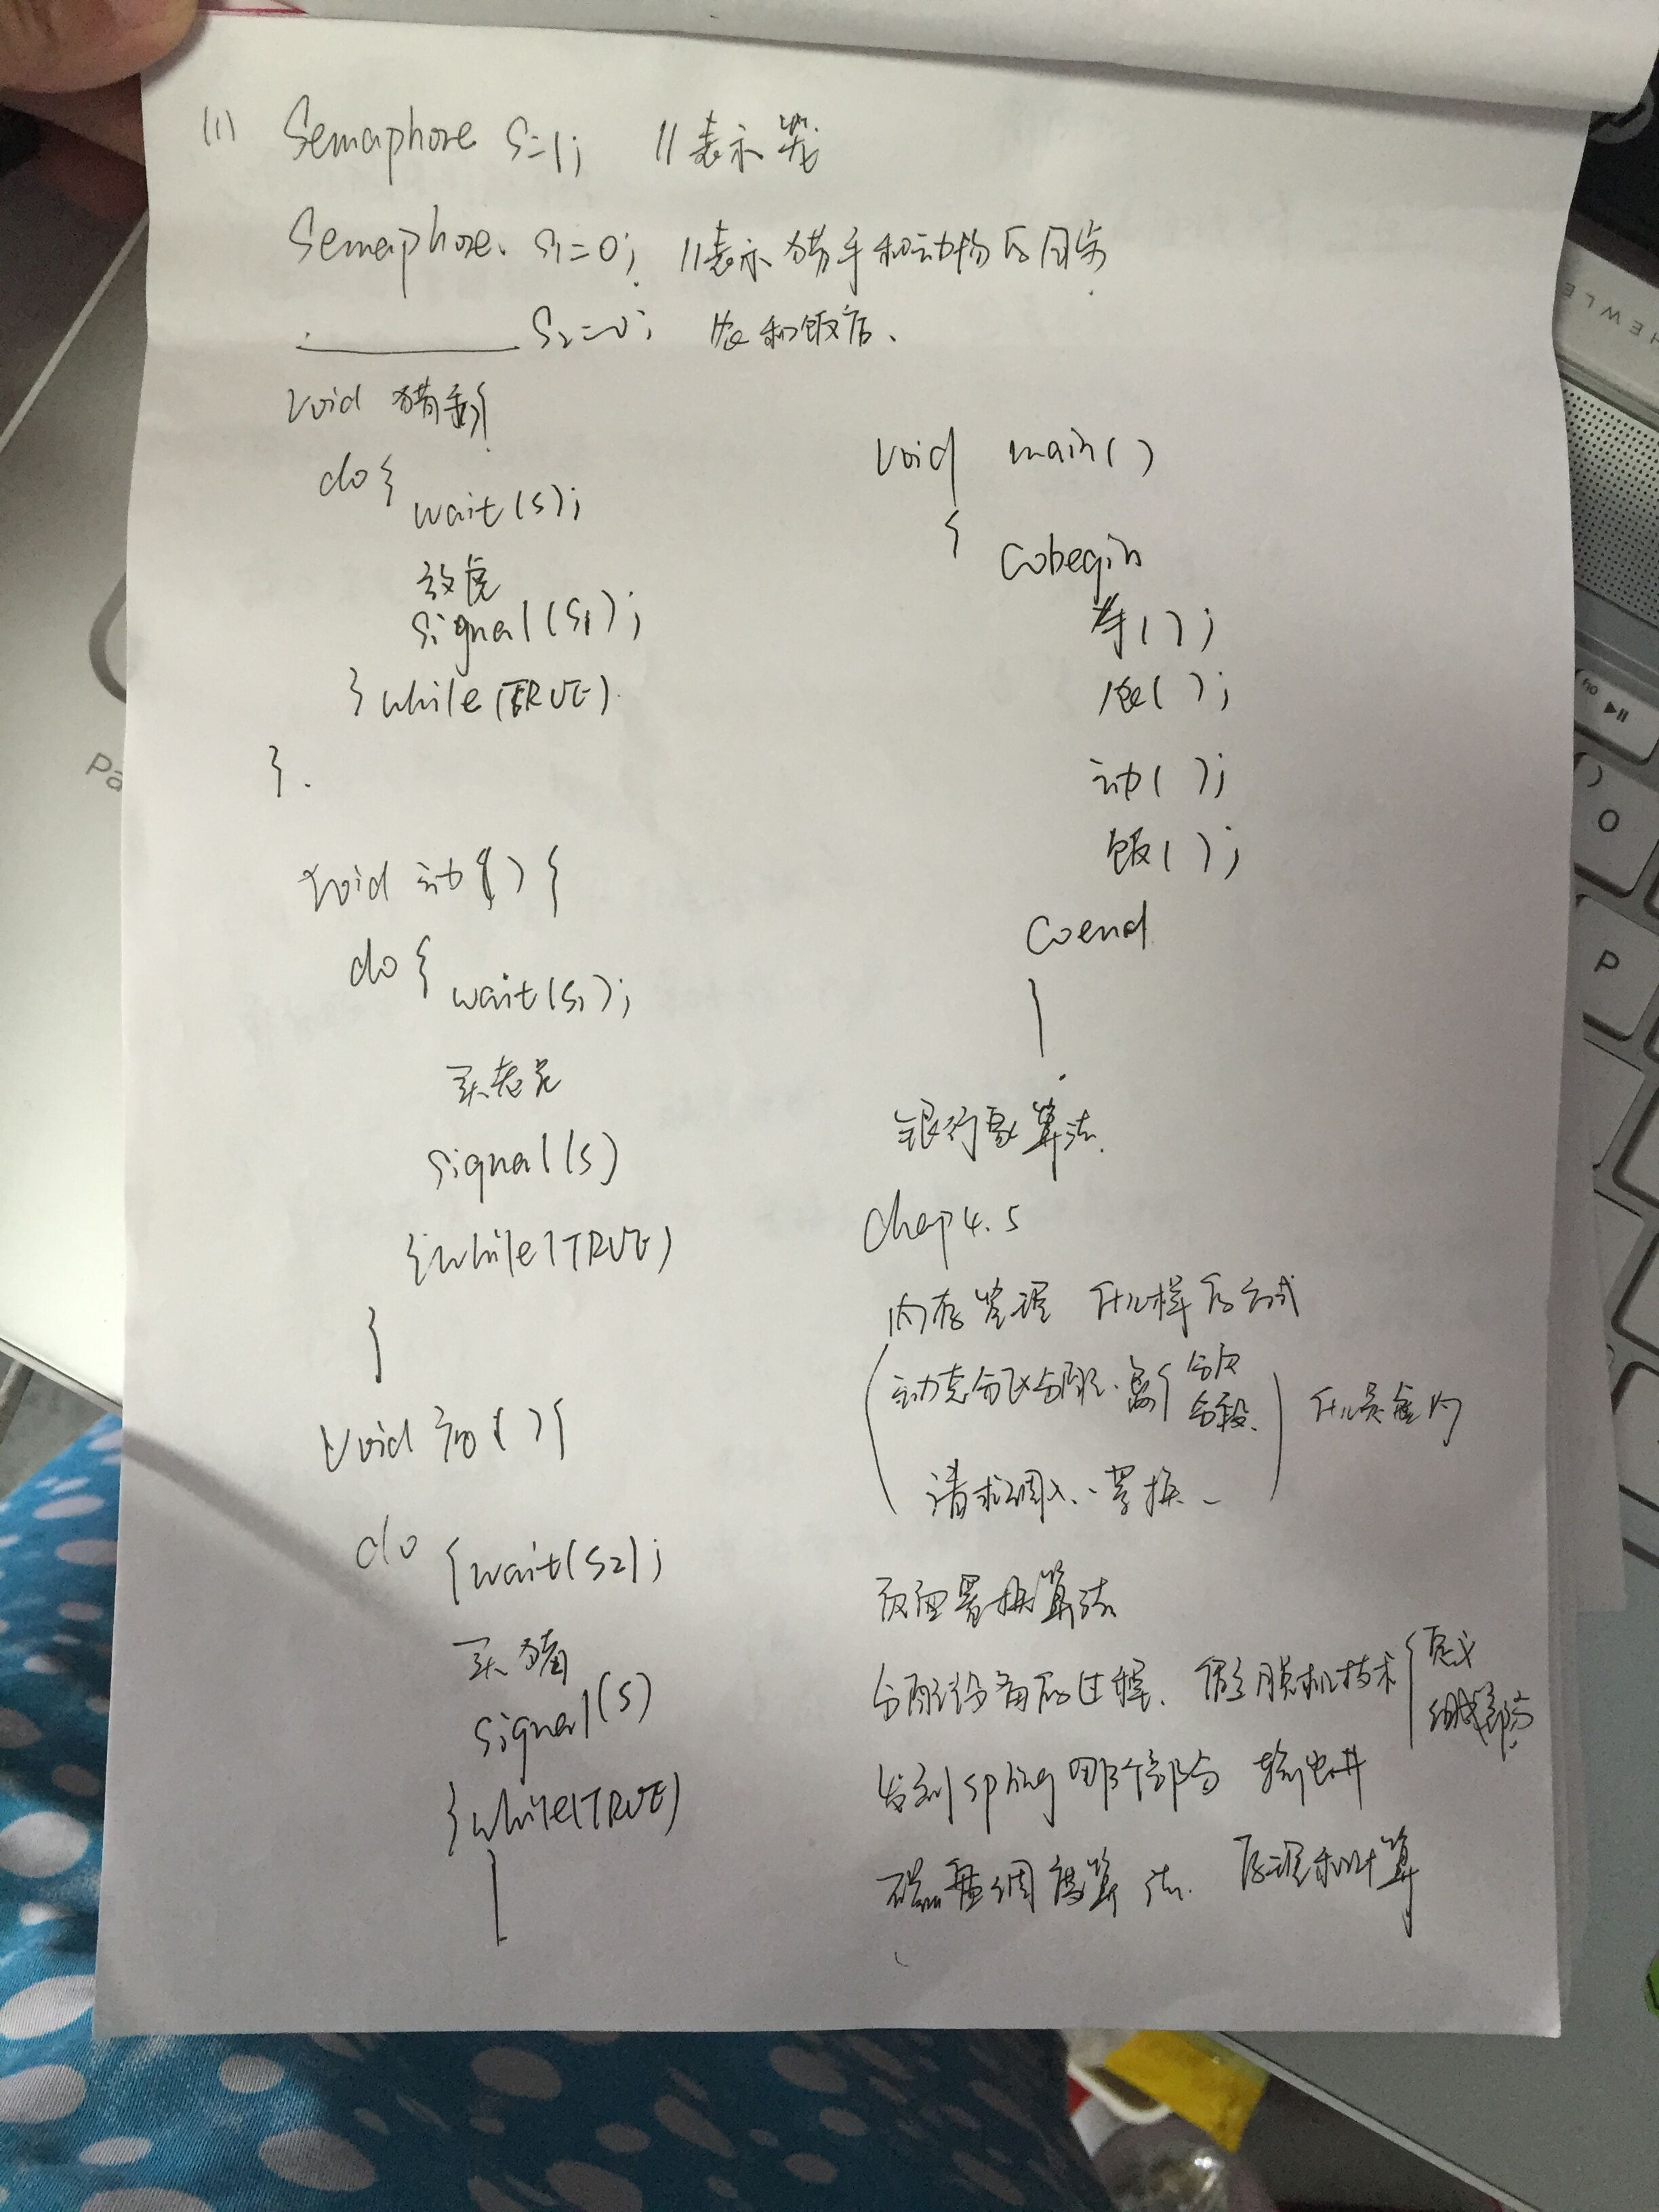 (1) Semaphore S=1; //表示笼
Semaphore. S1=0; //表示猎手和动物的同步
S2=0; 农和饭店.
void 猎手{
do {
wait(S);
放虎
signal(S1);
}while(TRUE).
}.
void 动(){
do {
wait(S1);
买老虎
signal(S)
}while(TRUE)
}
void
do {wait(S2);
买猪
signal(S)
}while(TRUE)
void main()
{
Cobegin
猎();
农();
动();
饭();
Coend
}
银行家算法.
chap 4.5
内存管理 什么样的方式
动态分区分配. 离{分页
分段.
什么是虚内
请求调入、置换
页面置换算法
分配设备的过程. 假脱机技术{定义
组成部分
spling 哪个部分 输出井
磁盘调度算法. 原理和计算
HEWLE
O
P
Pa